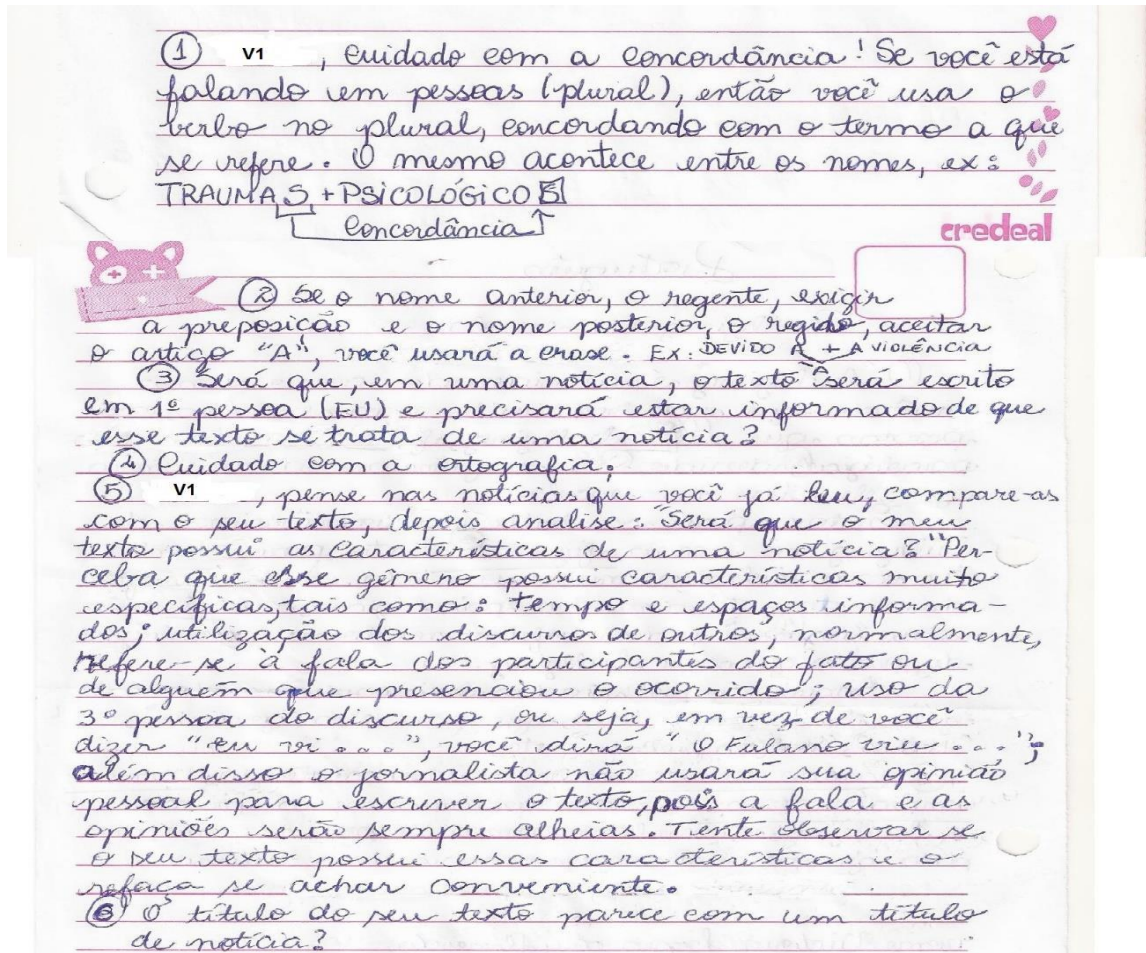 ① V1 , cuidado com a concordância! Se você está
falando em pessoas (plural), então você usa o
verbo no plural, concordando com o termo a que
se refere. O mesmo acontece entre os nomes, ex:
TRAUMAS + PSICOLÓGICOS
Concordância
credeal
② Se o nome anterior, o regente, exigir
a preposição e o nome posterior, o regido, aceitar
o artigo "A", você usará a crase. Ex: DEVIDO A + A VIOLÊNCIA
À
③ Será que, em uma notícia, o texto será escrito
em 1ª pessoa (EU) e precisará estar informado de que
esse texto se trata de uma notícia?
④ Cuidado com a ortografia.
⑤ V1 , pense nas notícias que você já leu, compare-as
com o seu texto, depois analise: "Será que o meu
texto possui as características de uma notícia?" Per-
ceba que esse gênero possui características muito
específicas, tais como: tempo e espaços informa-
dos; utilização dos discursos de outros, normalmente,
refere-se à fala dos participantes do fato ou
de alguém que presenciou o ocorrido; uso da
3ª pessoa do discurso, ou seja, em vez de você
dizer "eu vi...", você dirá "O Fulano viu...";
além disso o jornalista não usará sua opinião
pessoal para escrever o texto, pois a fala e as
opiniões serão sempre alheias. Tente observar se
o seu texto possui essas características e o
refaça se achar conveniente.
⑥ O título do seu texto parece com um título
de notícia?